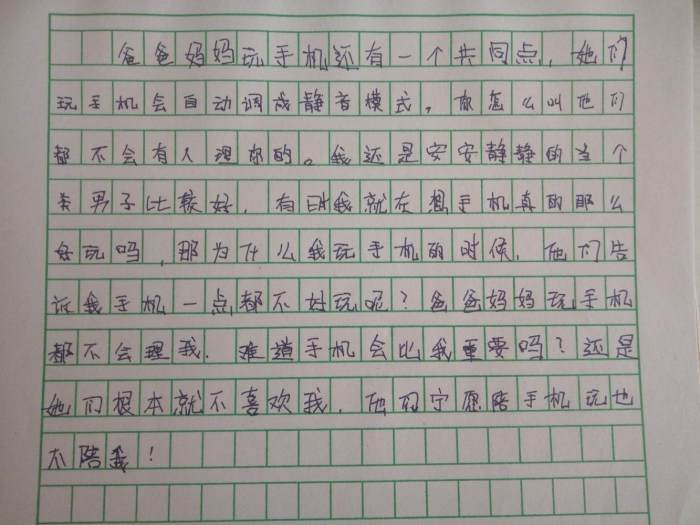 爸爸妈妈玩手机还有一个共同点，她们
玩手机会自动调成静音模式，你怎么叫他们
都不会有人理你的。我还是安安静静的当个
美男子比较好，有时我就在想手机真的那么
好玩吗，那为什么我玩手机的时候，他们告
诉我手机一点都不好玩呢？爸爸妈妈玩手机
都不会理我．难道手机会比我重要吗？还是
她们根本就不喜欢我．他们宁愿陪手机玩也
不陪我！